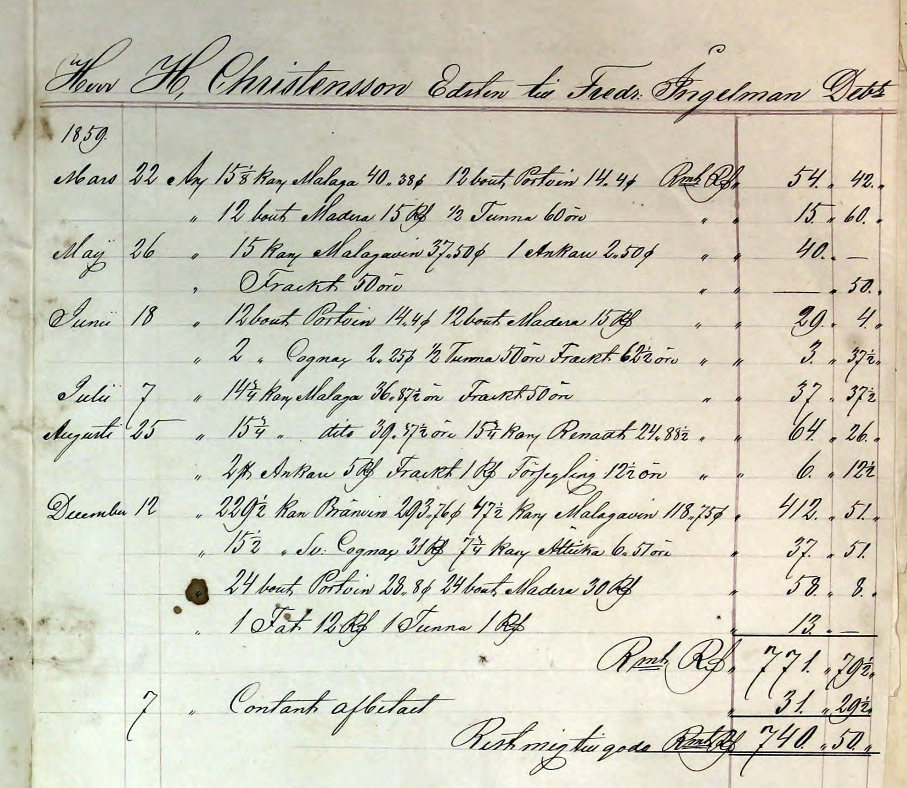 Herr H, Christensson Edsten till Fredr. Ingelman Debt
1859.
Mars 22 An 15⅛ kan Malaga 40. 38¢ 12 bout Portvin 14. 4¢ Rmt Rd " 54. " 42. "
" 12 bout Madera 15 Rd ½ Tunna 60 öre " " 15. " 60. "
Maÿ 26 " 15 kan Malagavin 37. 50¢ 1 Ankare 2. 50¢ " " 40. " — "
" Frackt 50 öre " " — " 50. "
Junii 18 " 12 bout Portvin 14. 4¢ 12 bout Madera 15 Rd " " 29. " 4. "
" 2 " Cognac 2. 25¢ ½ Tunna 50 öre Frackt 62½ öre " " 3. " 37½ "
Julii 7 " 14¾ kan Malaga 36. 87½ öre Frackt 50 öre " " 37 " 37½ "
Augusti 25 " 15¾ " dito 39. 37½ öre 15¾ kan Renadt 24. 88½ " " 64. " 26. "
" 2 st Ankare 5 Rd Frackt 1 Rd Försegling 12½ öre " " 6. " 12½
December 12 " 229½ kan Bränvin 293. 76¢ 47½ kan Malagavin 118. 75¢ " 412. " 51. "
" 15½ " Sv: Cognac 31 Rd 7¾ kan Ättika 6. 51 öre " 37. " 51.
" 24 bout Portvin 28. 8¢ 24 bout Madera 30 Rd " 58. " 8. "
" 1 Fat 12 Rd 1 Tunna 1 Rd " 13. " —
Rmt Rd " 771. " 79½ "
7 " Contant afbetalt " 31. " 29½ "
Rest mig till godo Rmt Rd 740. " 50. "